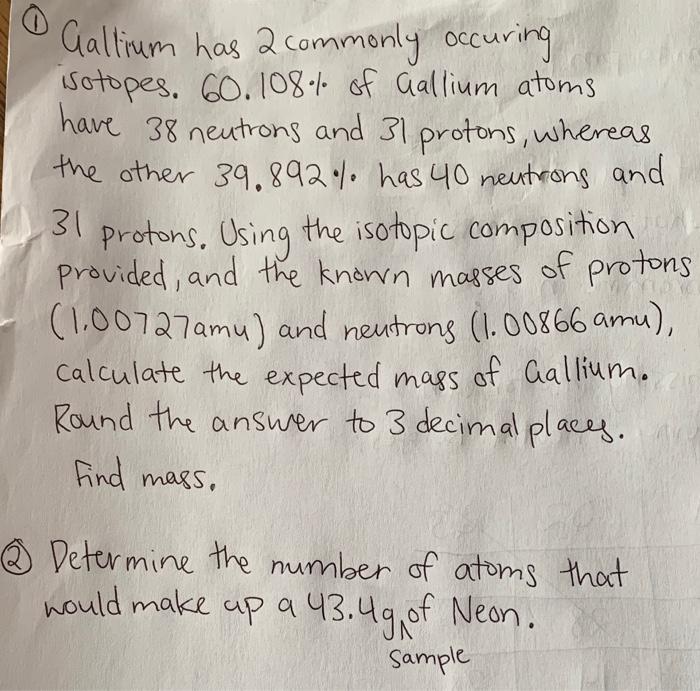 ① Gallium has 2 commonly occuring
isotopes. 60.108% of Gallium atoms
have 38 neutrons and 31 protons, whereas
the other 39.892% has 40 neutrons and
31 protons. Using the isotopic composition
provided, and the known masses of protons
(1.00727amu) and neutrons (1.00866 amu),
calculate the expected mass of Gallium.
Round the answer to 3 decimal places.
Find mass.
② Determine the number of atoms that
would make up a 43.4g ^ of Neon.
sample